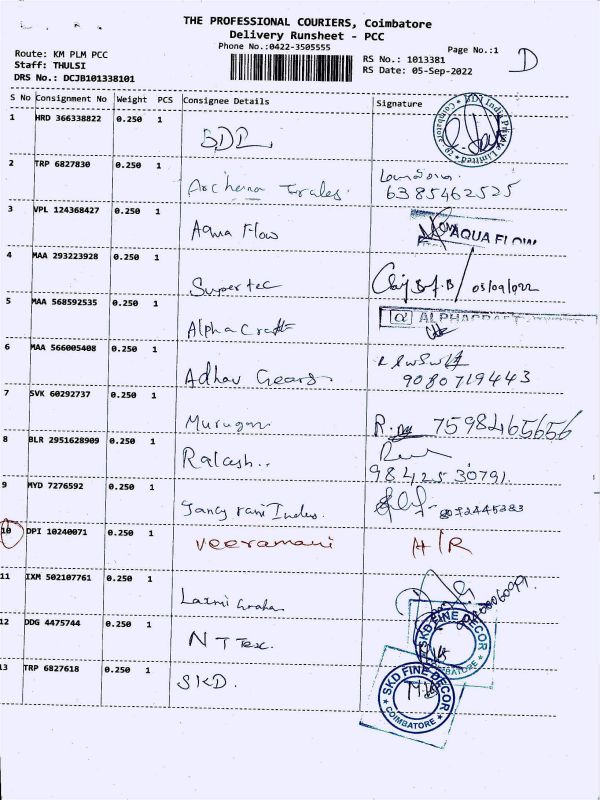 THE PROFESSIONAL COURIERS, Coimbatore
Delivery Runsheet - PCC
Phone No.:0422-3505555
Page No.:1 D
Route: KM PLM PCC
Staff: THULSI
DRS No.: DCJB101338101
RS No.: 1013381
RS Date: 05-Sep-2022
S No Consignment No Weight PCS Consignee Details Signature
1 HRD 366338822 0.250 1
SDI India Private Limited * Coimbatore
2 TRP 6827830 0.250 1
Archana
6385462525
3 VPL 124368427 0.250 1
Aqua Flow AQUA FLOW
4 MAA 293223928 0.250 1
Supertec 05/09/2022
5 MAA 568592535 0.250 1
Alpha Craft ALPHACRAFT
6 MAA 566005408 0.250 1
Adhav Gears 9080719443
7 SVK 60292737 0.250 1
Murugan R. 7598465656
8 BLR 2951628909 0.250 1
98425 30791
9 MYD 7276592 0.250 1
10 DPI 10240071 0.250 1
Veeramani
11 IXM 502107761 0.250 1
Laxmi
12 DDG 4475744 0.250 1
N T Tex. SKD FINE DECOR
COIMBATORE
13 TRP 6827618 0.250 1
SKD. SKD FINE DECOR
COIMBATORE